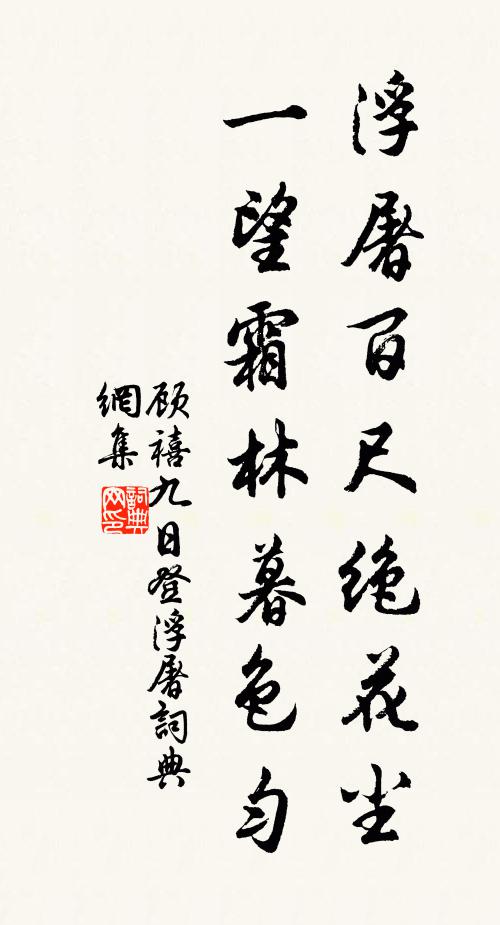 浮屠百尺绝花尘
一望霜林暮色勻
顾禧九日登浮屠詞典
網集
詞典
网印